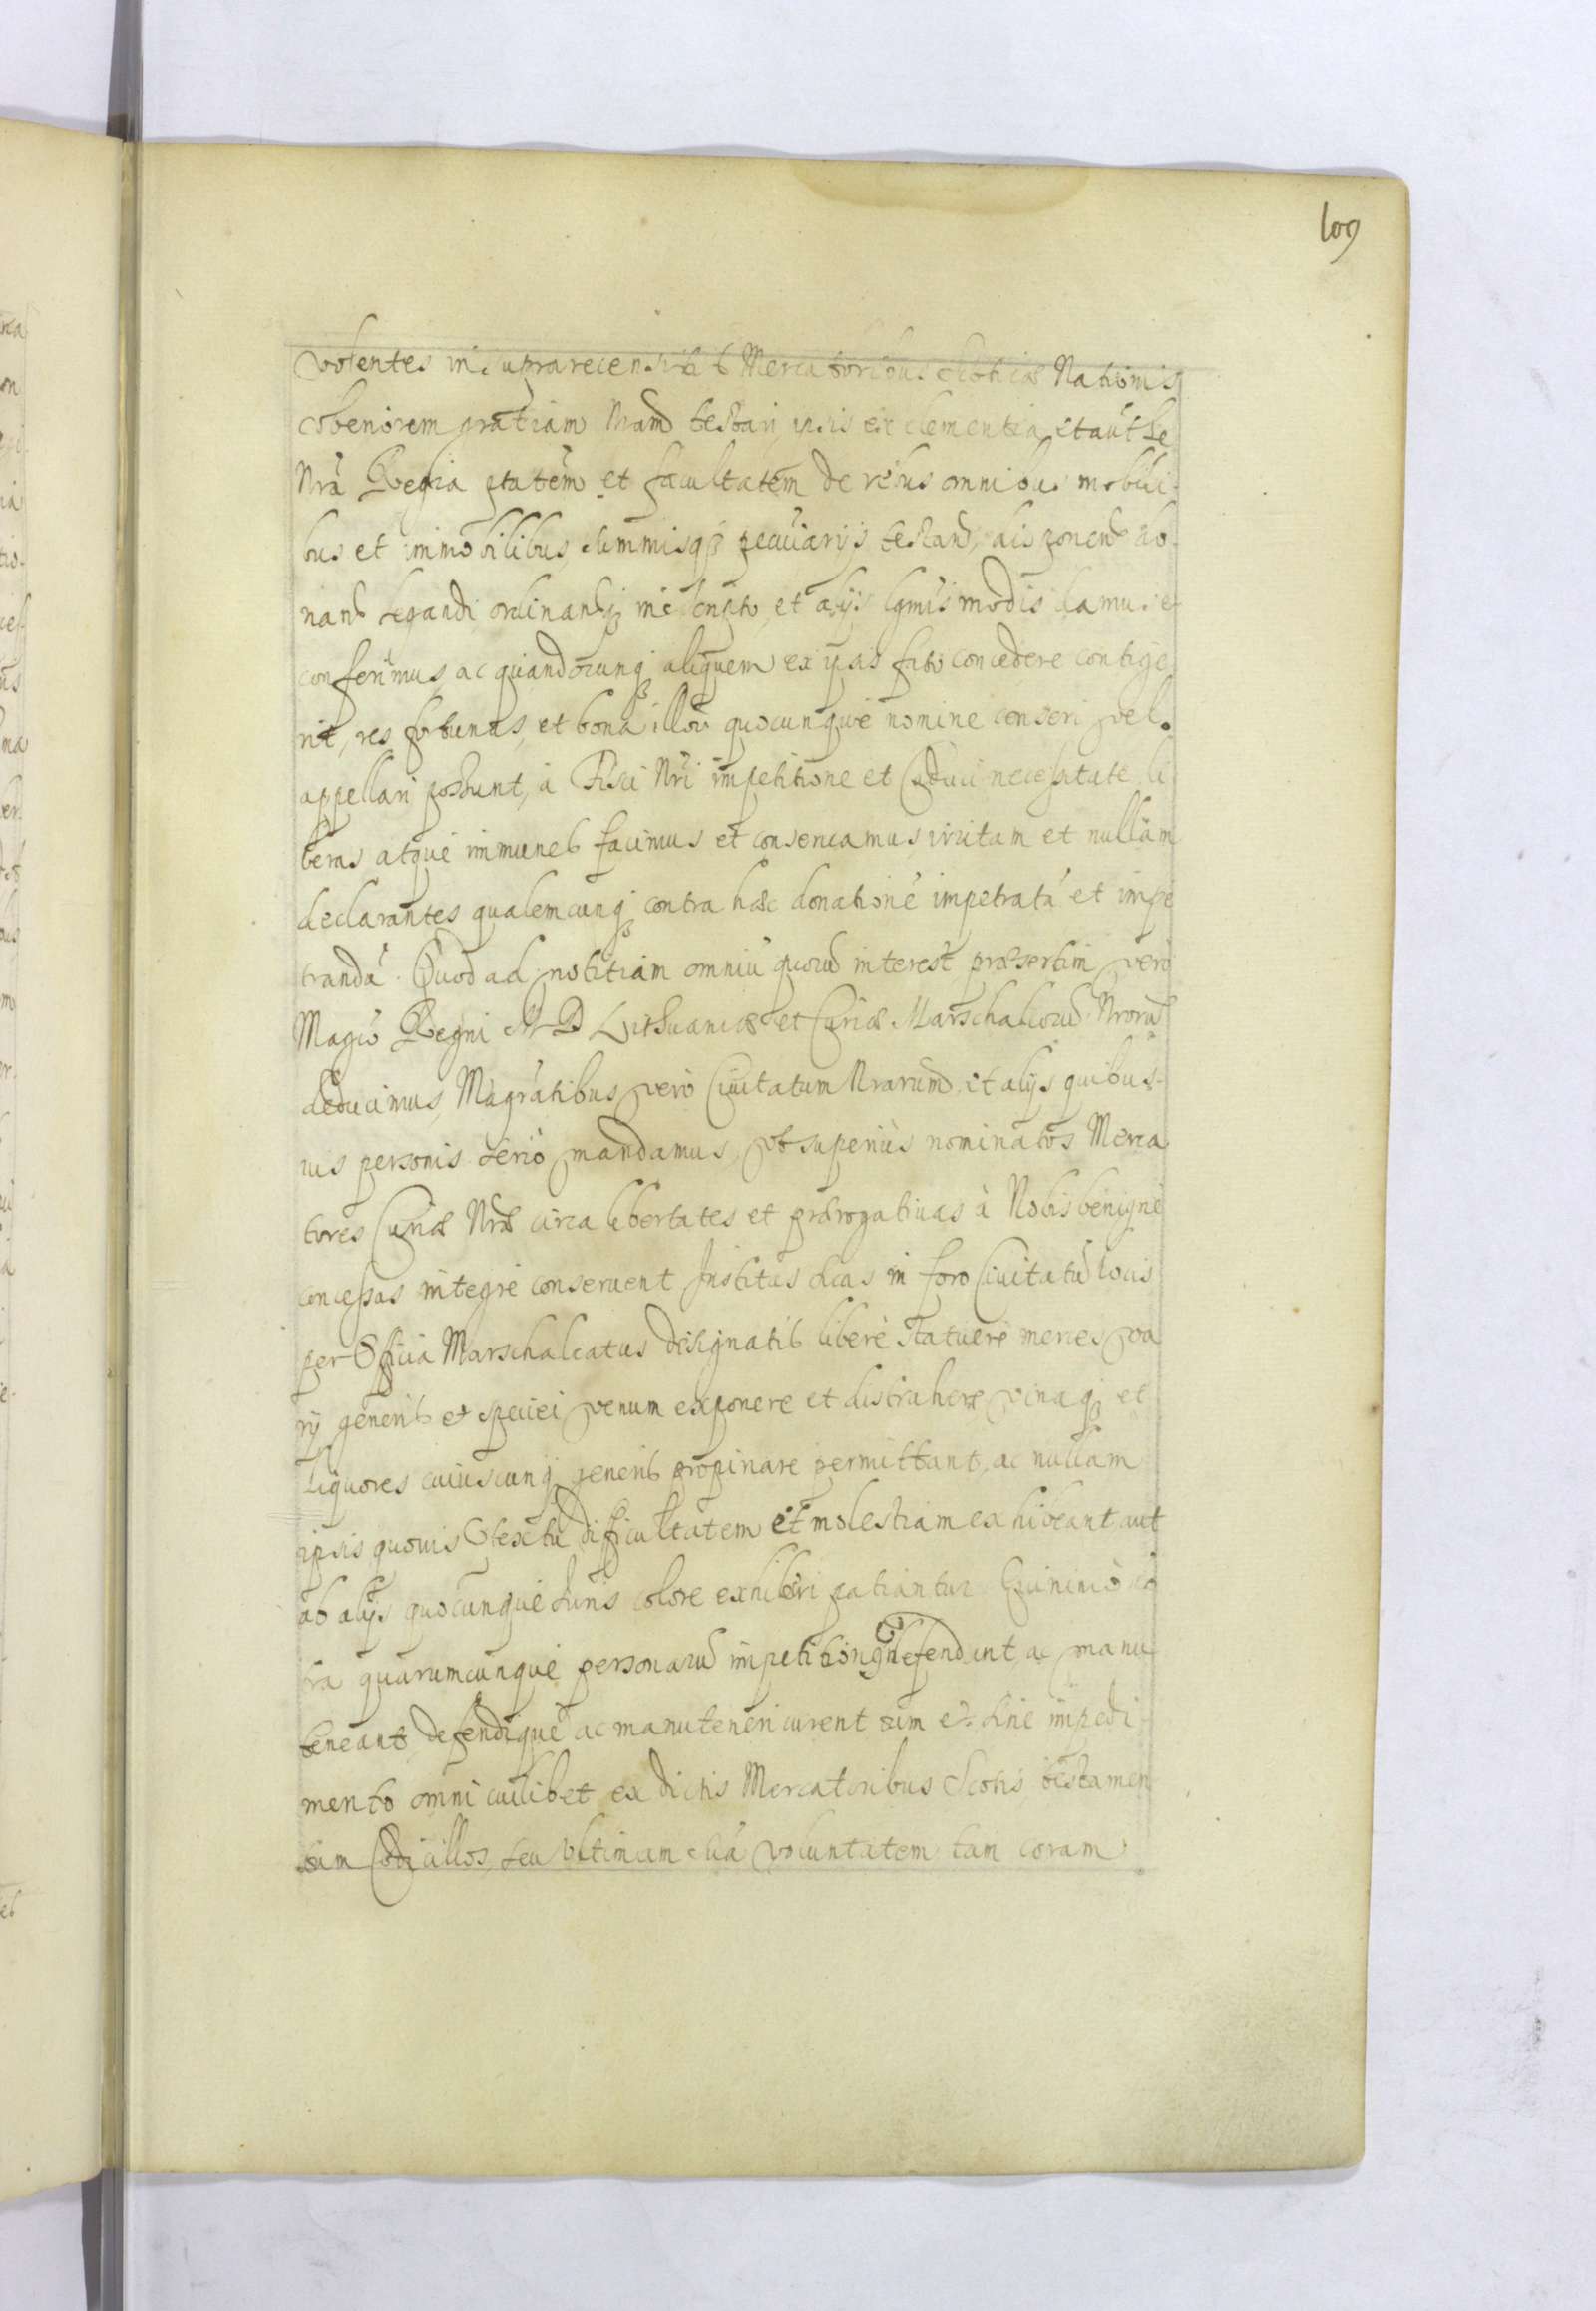 109
volentes in suprarecensitis Mercatoribus Scoticæ Nationis
vberiorem gratiam Nram testari, ipsis ex clementia et aut-te
Nrã Regia ptatem et facultatem de rebus omnibus mobili-
bus et immobilibus, summisq3 pecuiarijs testand, disponend do-
nand legandi ordinandiq3 inscripto, et alijs lgmis modis damus et
conferimus, ac quandocunq3 aliquem ex ipsis fato concedere contige
rit, res fortunas, et bona illorũ quocunque nomine censeri vel
appellari possunt, à Fisci Nri impetitione et Caduci necessitate li
beras atque immunes facimus et conservamus, irritam et nullam
declarantes qualemcunq3 contra hac donationẽ impetratã et impe
trandã. Quod ad notitiam omniũ quorũ interest præsertim verò
Magcõ Regni M D Lithuaniæ et Curiæ Marschalcorũ Nrorũ
deducimus, Magratibus verò Ciuitatum Nrarum et alijs quibus-
uis personis seriò mandamus, vt superiùs nominatos Merca
tores Curiæ Nræ circa libertates et prærogatiuas à Nobis benignè
concessas integrè conseruent Institas dcas in foro Ciuitatũ locis
per Officia Marschalcatus designatis liberè statuere merces va
rij generis et speciei venum exponere et distrahere vinaq3 et
liquores cuiuscunq3 generis propinare permittant, ac nullam
ipsis quouis ptextu difficultatem et molestiam exhibeant aut
ab alijs quocunque Iuris colore exhiberi patiantur Quinimò cõ
tra quarumcunque personarũ impetitiones defendant, ac manu
teneant defendique ac manuteneri curent cum et sine impedi-
mento omni cuilibet ex dictis Mercatoribus Scotis testamen
tum Codicillos, seu vltimam suã voluntatem tam coram